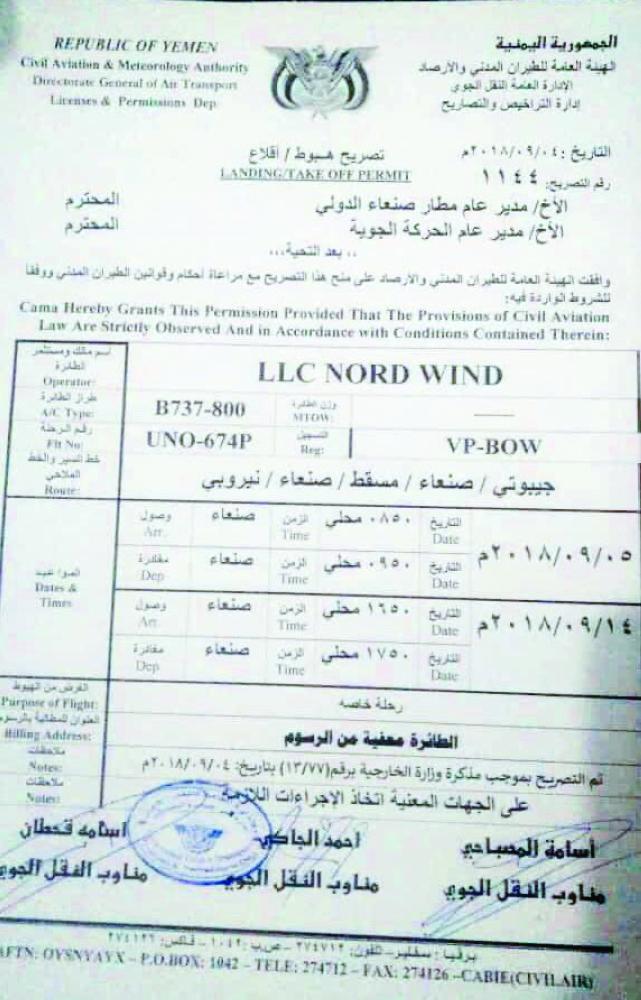 REPUBLIC OF YEMEN
Civil Aviation & Meteorology Authority
Directorate General of Air Transport
Licenses & Permissions Dep
الجمهورية اليمنية
الهيئة العامة للطيران المدني والارصاد
الإدارة العامة النقل الجوي
إدارة التراخيص والتصاريح
التاريخ : ٢٠١٨/٠٩/٠٤م
تصريح هبوط / اقلاع
LANDING/TAKE OFF PERMIT
رقم التصريح: ١١٤٤
الأخ/ مدير عام مطار صنعاء الدولي المحترم
الأخ/ مدير عام الحركة الجوية المحترم
.. بعد التحية،،،
وافقت الهيئة العامة للطيران المدني والارصاد على منح هذا التصريح مع مراعاة أحكام وقوانين الطيران المدني ووفقا
للشروط الواردة فيه:
Cama Hereby Grants This Permission Provided That The Provisions of Civil Aviation
Law Are Strictly Observed And in Accordance with Conditions Contained Therein:
اسم مالك ومستثمر
الطائرة
Operator:
LLC NORD WIND
طراز الطائرة
A/C Type:
B737-800
وزن الطائرة
MTOW:
رقم الرحلة
Flt No:
UNO-674P
التسجيل
Reg:
VP-BOW
خط السير والخط
الملاحي
Route:
جيبوتي / صنعاء / مسقط / صنعاء / نيروبي
المواعيد
Dates &
Times
وصول
Arr.
صنعاء
الزمن
Time
٠٨٥٠ محلي
التاريخ
Date
٢٠١٨/٠٩/٠٥م
مغادرة
Dep
صنعاء
الزمن
Time
٠٩٥٠ محلي
التاريخ
Date
وصول
Arr.
صنعاء
الزمن
Time
١٦٥٠ محلي
التاريخ
Date
٢٠١٨/٠٩/١٤م
مغادرة
Dep
صنعاء
الزمن
Time
١٧٥٠ محلي
التاريخ
Date
الغرض من الهبوط
Purpose of Flight:
رحلة خاصه
العنوان للمطالبة بالرسوم
Billing Address:
الطائرة معفية من الرسوم
ملاحظات
Notes:
تم التصريح بموجب مذكرة وزارة الخارجية برقم(١٣/٧٧) بتاريخ: ٢٠١٨/٠٩/٠٤م
ملاحظات
Notes:
على الجهات المعنية اتخاذ الإجراءات اللازمة
أسامة المصباحي
مناوب النقل الجوي
احمد الجاكي
مناوب النقل الجوي
اسامه قحطان
مناوب النقل الجوي
برقيا : سفلير - تلفون: ٢٧٤٧١٢ - ص.ب: ١٠٤٢ - فاكس: ٢٧٤١٢٦
AFTN: OYSNYAYX – P.O.BOX: 1042 – TELE: 274712 – FAX: 274126 –CABIE(CIVILAIR)